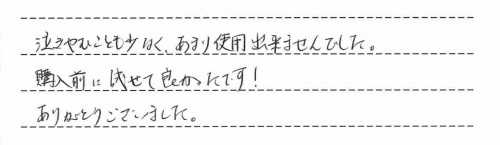 泣きやむことも少なく、あまり使用出来ませんでした。
購入前に試せて良かったです!
ありがとうございました。